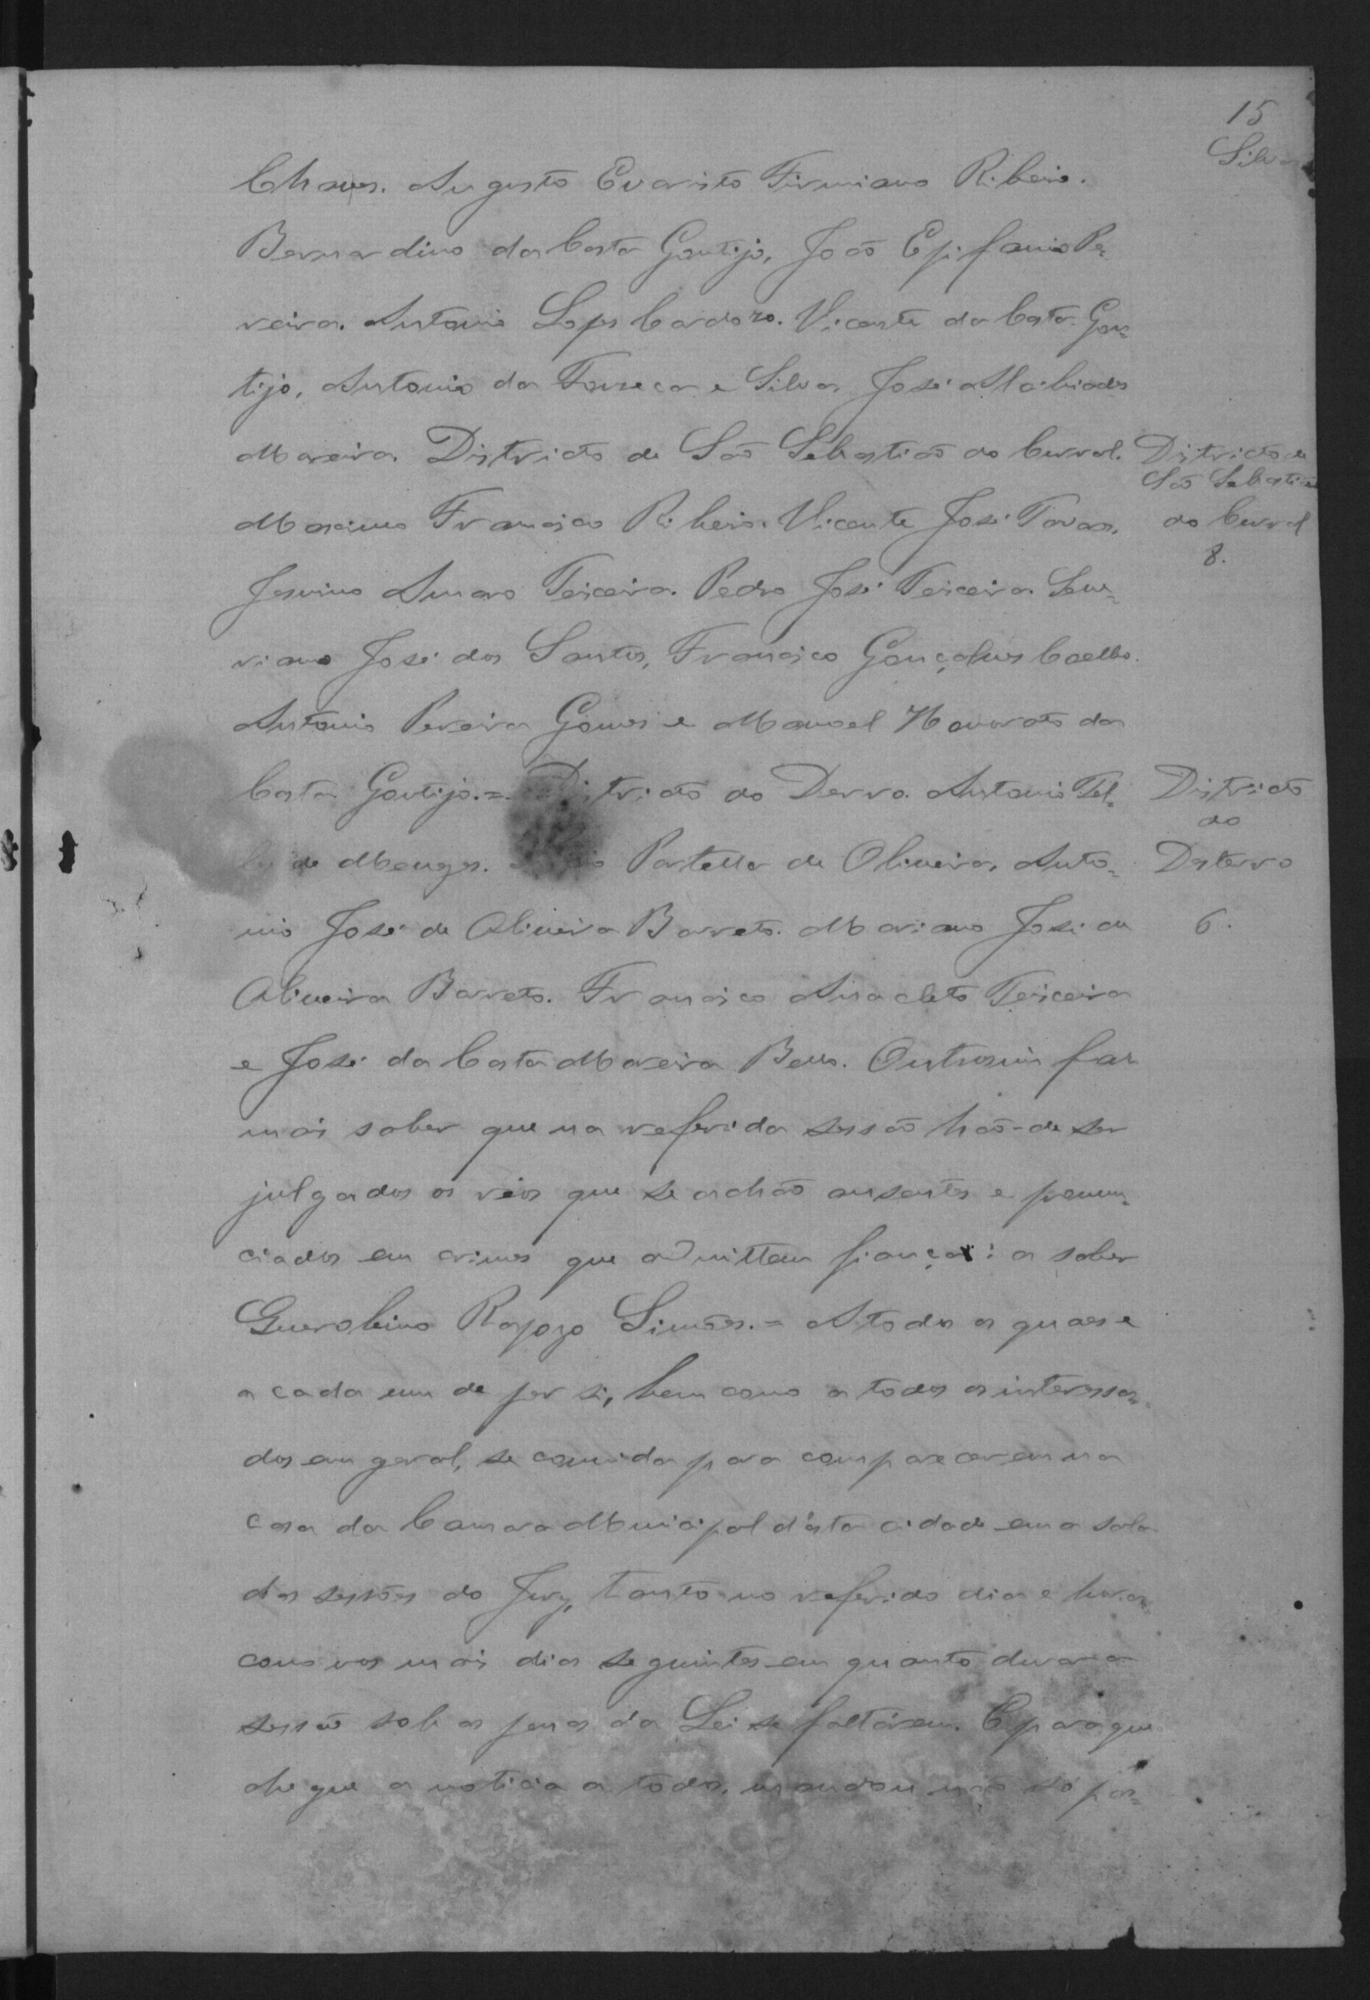 15
Silva
Chaves. Augusto Evaristo Firmiano Ribeiro.
Bernardino da Costa Gontijo, João Epifanio Pe=
reira. Antonio Lopes Cardozo. Vicente da Costa Gon=
tijo, Antonio da Fonseca e Silva, José Alcibiades
Moreira. Districto de São Sebastião do Curral.
Districto de
São Sebastião
do Curral
8.
Maximo Francisco Ribeiro. Vicente José Tavares,
Jesuino Amaro Teixeira. Pedro José Teixeira. Seve=
riano José dos Santos, Francisco Gonçalves Coelho.
Antonio Pereira Gomes e Manoel Honorato da
Costa Gontijo.= Districto do Derro. Antonio Tel=
Districto
do
Desterro
6.
de Menezes. Portella de Oliveira, Anto=
nio José de Oliveira Barreto. Mariano José de
Oliveira Barreto. Francisco Anacleto Teixeira
e José da Costa Moreira Bello. Outrosim faz
mais saber que na referida sessão hão-de ser
julgados os réos que se achão ausentes e pronun=
ciados em crimes que admittem fiança: a saber
Rapozo Simões.= A todos os quaes e
a cada um de per si, bem como a todos os interessa=
dos em geral, se convida para comparecerem na
casa da Camara Municipal d'esta cidade em a sala
das sessões do Jury, tanto no referido dia e hora,
como nos mais dias seguintes em quanto durar a
sessão sob as penas da Lei se faltárem. E para que
chegue a noticia a todos, mandou não só pas=